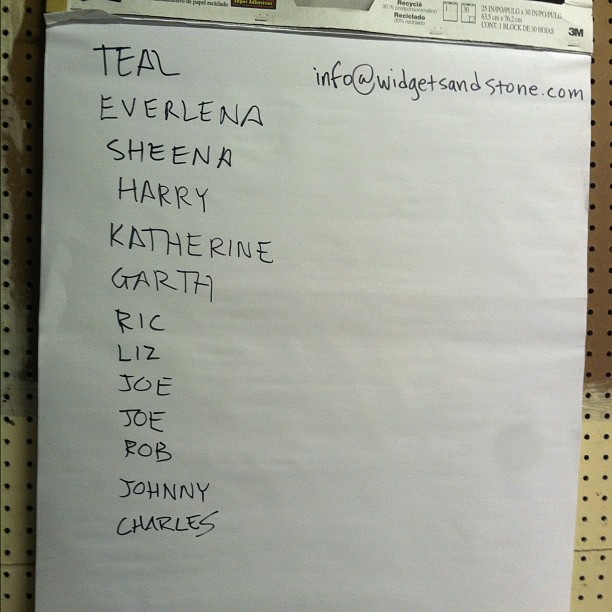 de papel reciclado
Recyclé
Reciclado
30
25 IN/PO/PULG X 30 IN/PO/PULG
63,5 cm x 76,2 cm
CONT. 1 BLOCK DE 30 HOJAS
3M
TEAL
info@widgetsandstone.com
EVERLENA
SHEENA
HARRY
KATHERINE
GARTH
RIC
LIZ
JOE
JOE
ROB
JOHNNY
CHARLES